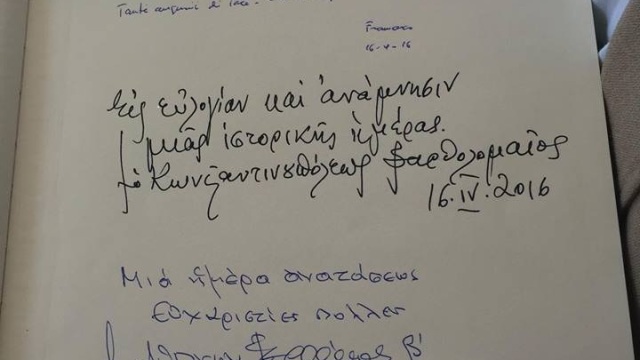 Tante
Francesco
16-4-16
Εἰς εὐλογίαν καὶ ἀνάμνησιν
μιᾶς ἱστορικῆς ἡμέρας.
ὁ Κωνσταντινουπόλεως Βαρθολομαῖος
16.IV.2016
Μιά ἡμέρα ανατάσεως
Εὐχαριστίες πολλές